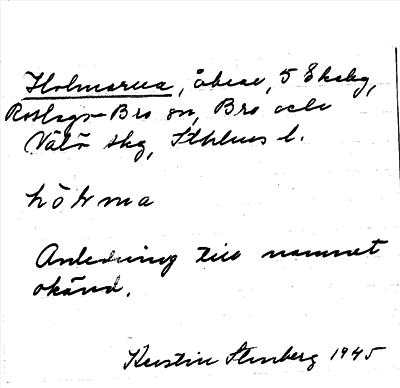 Holmarna, åbene, 5 Ekeby,
Roslags-Bro sn, Bro och
Vätö skg, Sthlms l.
hòlma
Anledning till namnet
okänd.
Kerstin Stenberg 1945